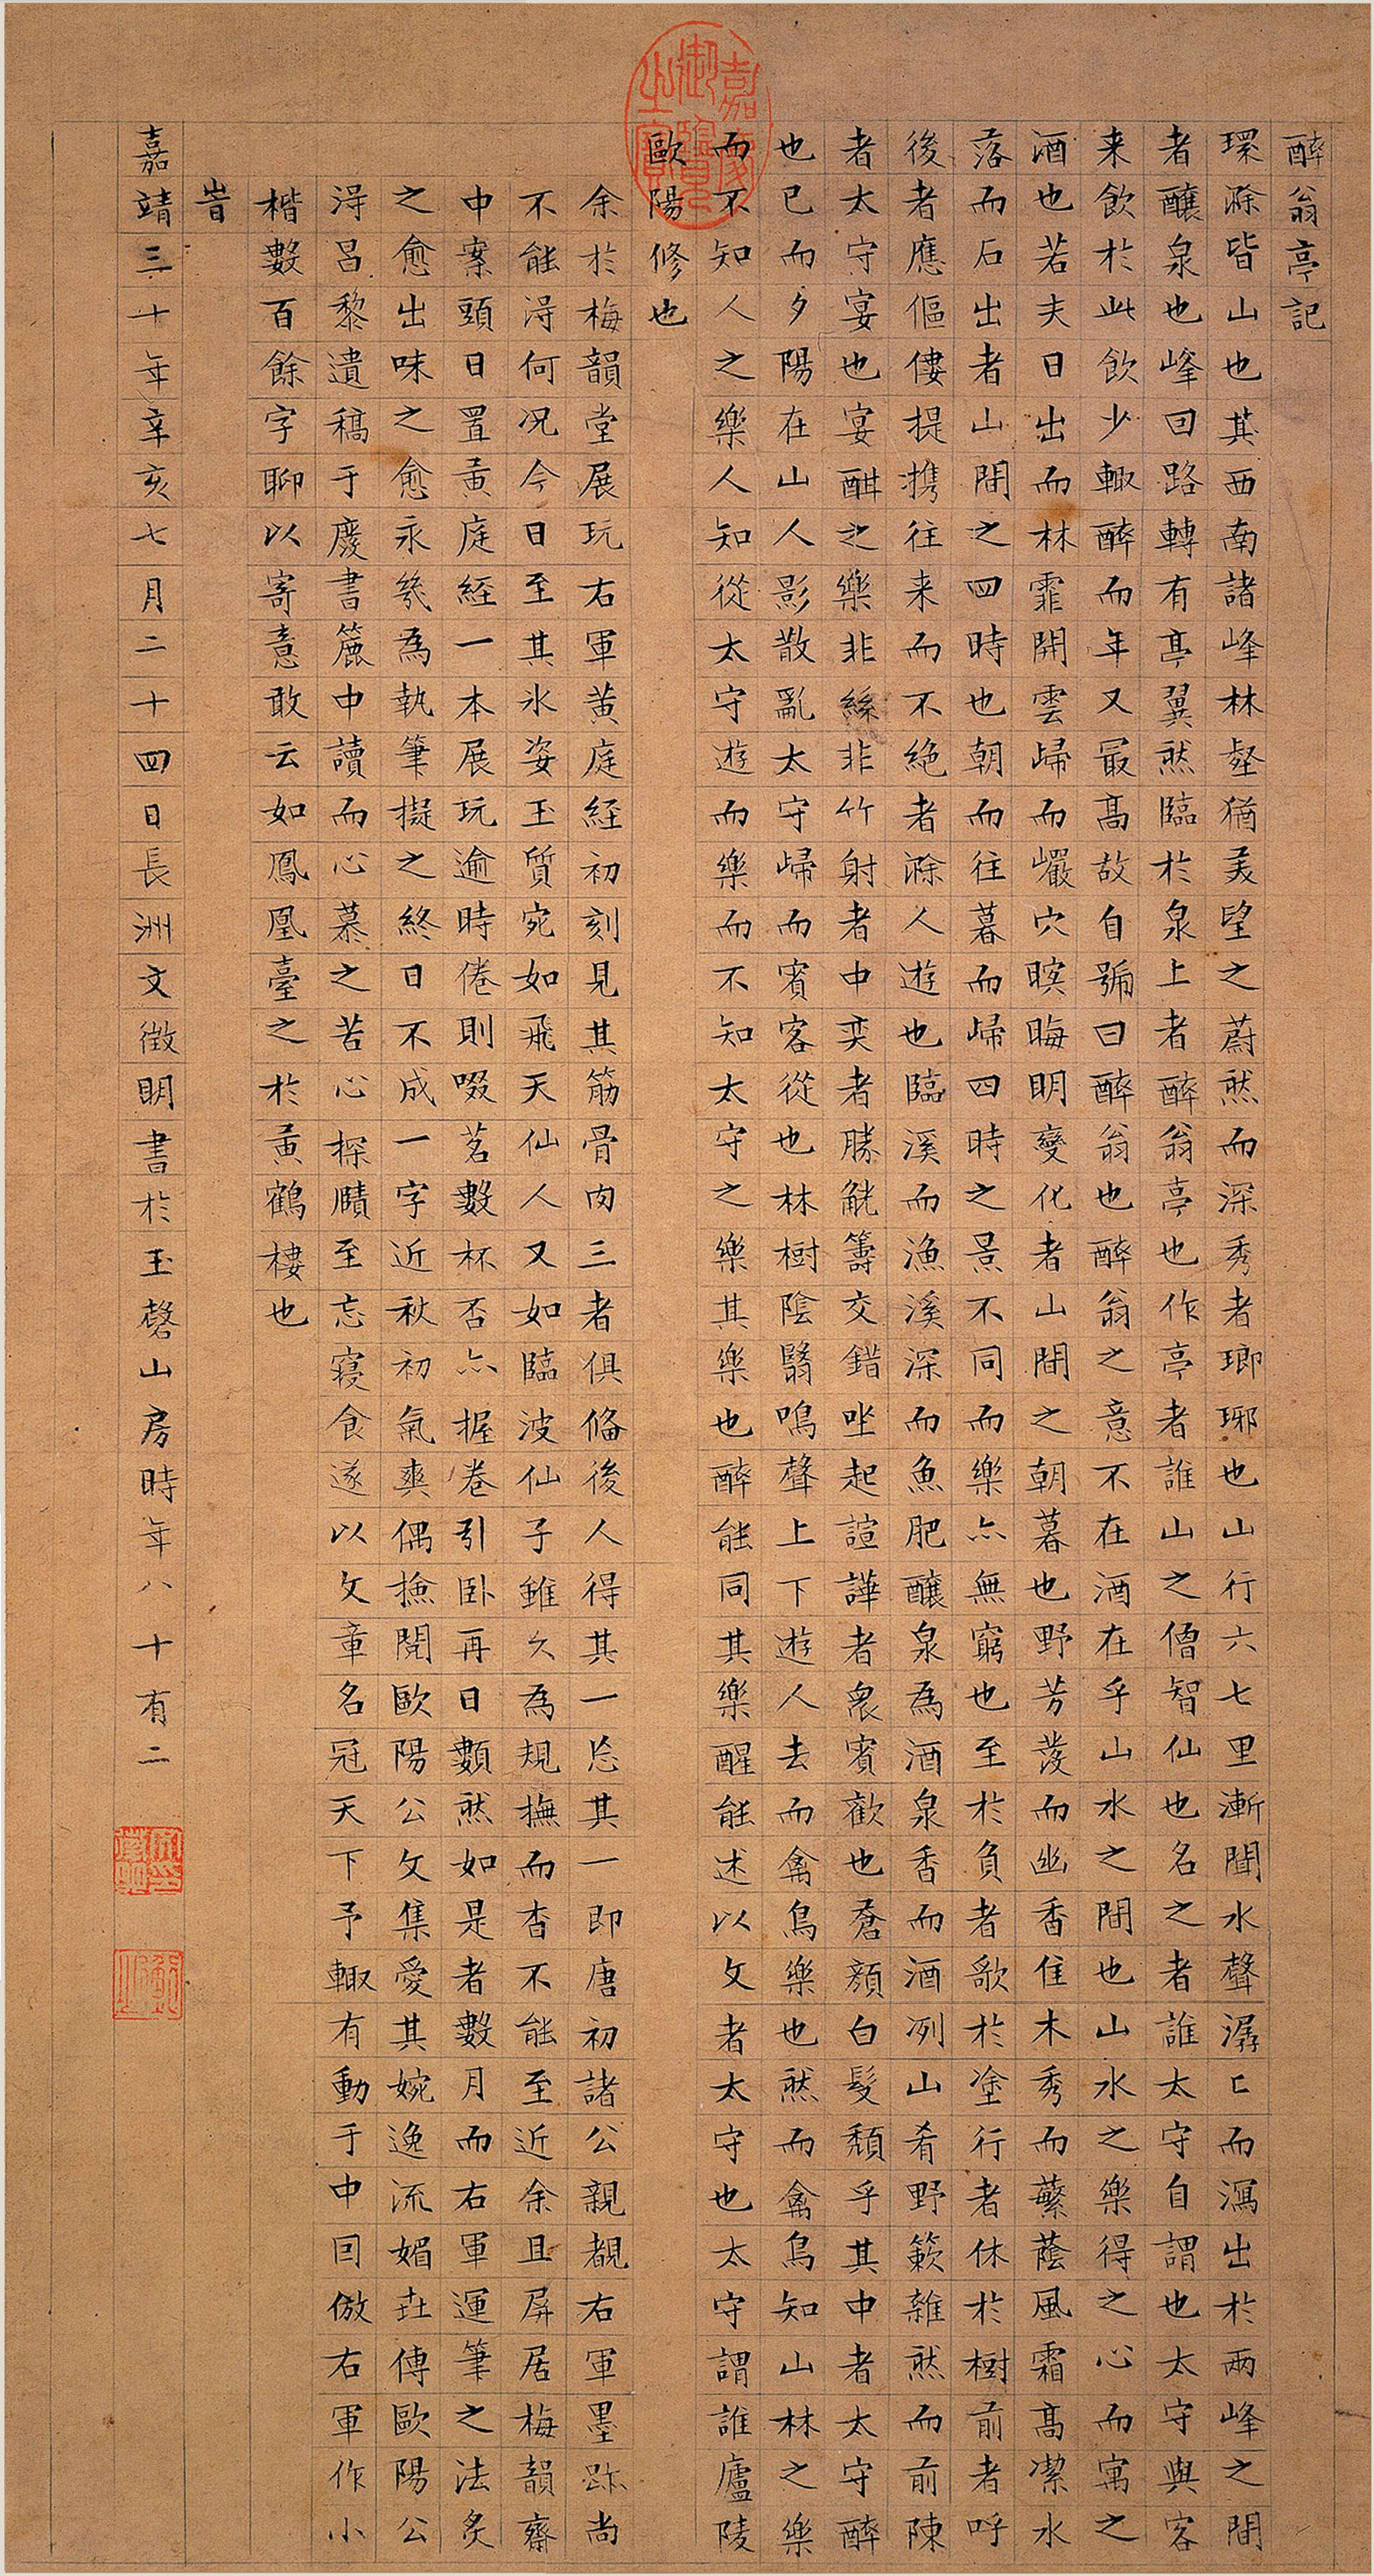 醉翁亭記
環滁皆山也其西南諸峰林壑猶美望之蔚然而深秀者瑯琊也山行六七里漸聞水聲潺〻而瀉出於兩峰之間
者釀泉也峰回路轉有亭翼然臨於泉上者醉翁亭也作亭者誰山之僧智仙也名之者誰太守自謂也太守與客
来飲於此飲少輒醉而年又最髙故自號曰醉翁也醉翁之意不在酒在乎山水之間也山水之樂得之心而寓之
酒也若夫日出而林霏開雲歸而巖穴暝晦明變化者山間之朝暮也野芳發而幽香佳木秀而蘩蔭風霜髙潔水
落而石出者山間之四時也朝而往暮而歸四時之景不同而樂亦無窮也至於負者歌於塗行者休於樹前者呼
後者應傴僂提攜往来而不絶者滁人遊也臨溪而漁溪深而魚肥釀泉為酒泉香而酒冽山肴野簌雜然而前陳
者太守宴也宴酣之樂非絲非竹射者中奕者勝觥籌交錯坐起諠譁者衆賓歡也蒼顏白髮頹乎其中者太守醉
也已而夕陽在山人影散亂太守歸而賓客從也林樹陰翳鳴聲上下遊人去而禽鳥樂也然而禽鳥知山林之樂
而不知人之樂人知從太守遊而樂而不知太守之樂其樂也醉能同其樂醒能述以文者太守也太守謂誰廬陵
歐陽修也
余於梅韻堂展玩右軍黄庭經初刻見其筋骨肉三者俱偹後人得其一忘其一即唐初諸公親覩右軍墨跡尚
不能得何况今日至其氷姿玉質宛如飛天仙人又如臨波仙子雖久為規撫而杳不能至近余且屏居梅韻齋
中案頭日置黄庭經一本展玩逾時倦則啜茗數杯否亦握卷引卧再日數然如是者數月而右軍運筆之法炙
之愈出味之愈永幾為執筆擬之終日不成一字近秋初氣爽偶撿閱歐陽公文集愛其婉逸流媚傳歐陽公
得昌黎遺稿于慶書簏中讀而心慕之苦心探賾至忘寢食遂以文章名冠天下予輒有動于中囙倣右軍作小
楷數百餘字聊以寄意敢云如鳳凰臺之於黄鶴樓也
旹
嘉靖三十年辛亥七月二十四日長洲文徵明書於玉磬山房時年八十有二
嘉慶御覽之寶
文徵明印
衡山